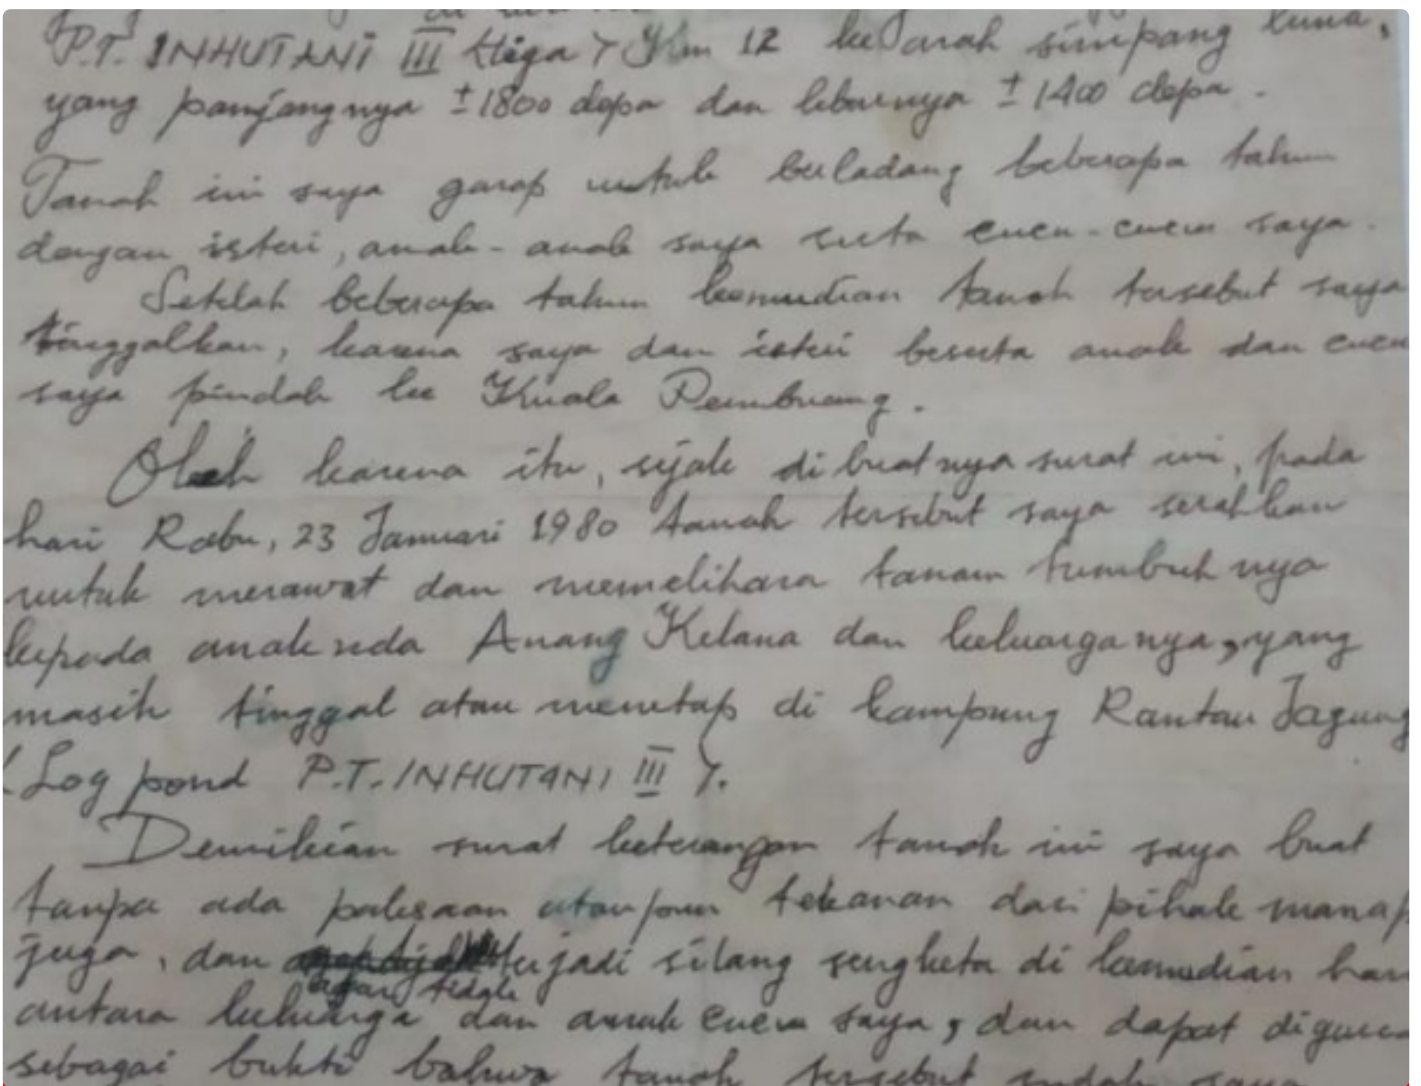 P.T. INHUTANI III tiga) Km 12 ke arah simpang luna,
yang panjangnya ± 1800 depa dan lebarnya ± 1400 depa.
Tanah ini saya garap untuk berladang beberapa tahun
dengan isteri, anak-anak saya serta cucu-cucu saya.
Setelah beberapa tahun kemudian tanah tersebut saya
tinggalkan, karena saya dan isteri beserta anak dan cucu
saya pindah ke Kuala Pembuang.
Oleh karena itu, sejak dibuatnya surat ini, pada
hari Rabu, 23 Januari 1980 tanah tersebut saya serahkan
untuk merawat dan memelihara tanam tumbuhnya
kepada anaknda Anang Kelana dan keluarganya, yang
masih tinggal atau menetap di kampung Rantau Jagung
(Log pond P.T. INHUTANI III).
Demikian surat keterangan tanah ini saya buat
tanpa ada paksaan ataupun tekanan dari pihak manap
juga, dan agar tidak terjadi silang sengketa di kemudian hari
antara keluarga dan anak cucu saya, dan dapat diguna
sebagai bukti bahwa tanah tersebut sudah saya